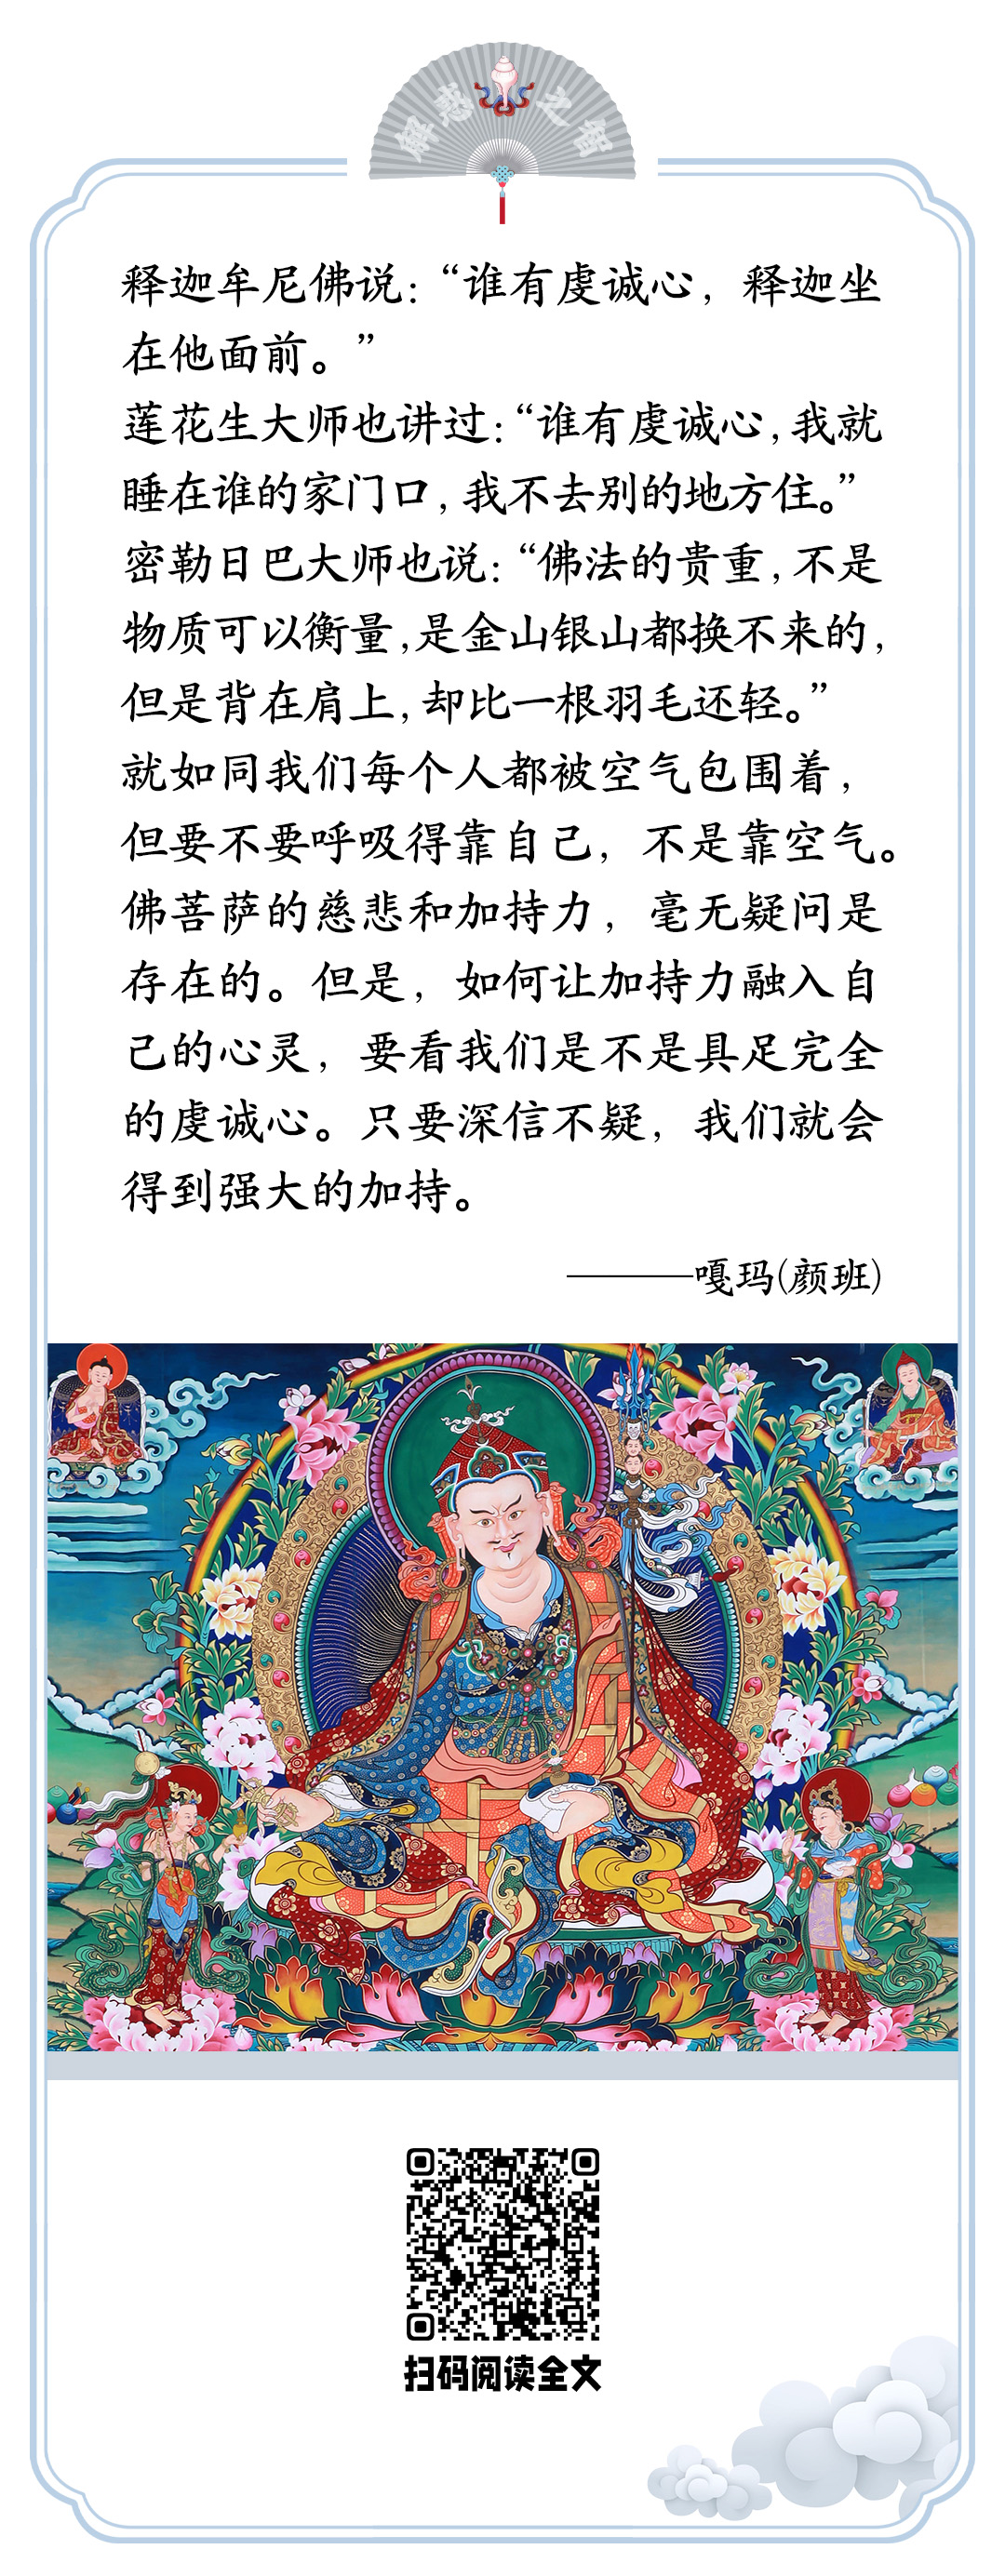 解惑之智
释迦牟尼佛说：“谁有虔诚心，释迦坐
在他面前。”
莲花生大师也讲过：“谁有虔诚心，我就
睡在谁的家门口，我不去别的地方住。”
密勒日巴大师也说：“佛法的贵重，不是
物质可以衡量，是金山银山都换不来的，
但是背在肩上，却比一根羽毛还轻。”
就如同我们每个人都被空气包围着，
但要不要呼吸得靠自己，不是靠空气。
佛菩萨的慈悲和加持力，毫无疑问是
存在的。但是，如何让加持力融入自
己的心灵，要看我们是不是具足完全
的虔诚心。只要深信不疑，我们就会
得到强大的加持。
———嘎玛(颜班)
扫码阅读全文